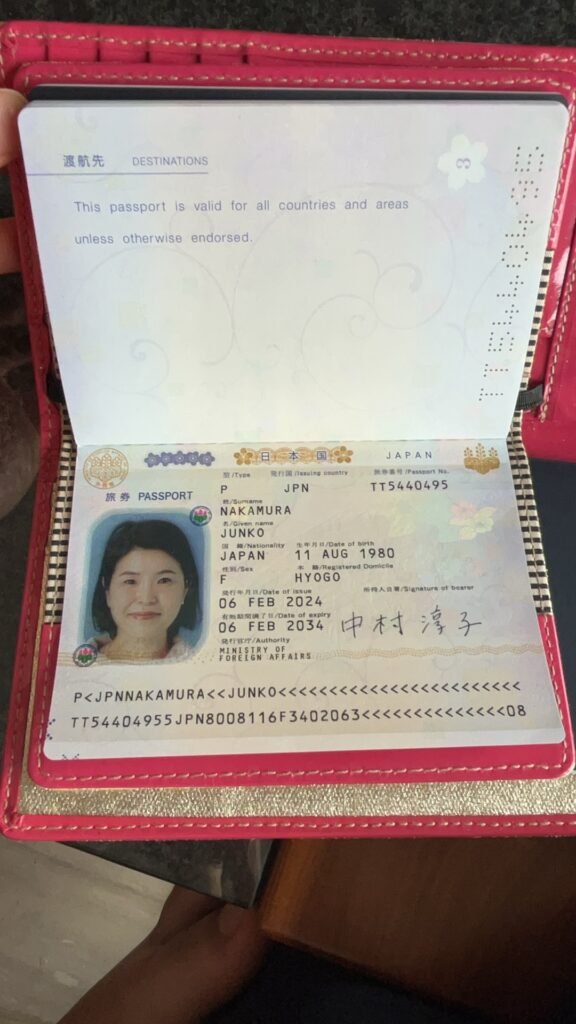 渡航先 DESTINATIONS
This passport is valid for all countries and areas
unless otherwise endorsed.
日本国 JAPAN
旅券 PASSPORT
型/Type 発行国/Issuing country 旅券番号/Passport No.
P JPN TT5440495
姓/Surname
NAKAMURA
名/Given name
JUNKO
国籍/Nationality 生年月日/Date of birth
JAPAN 11 AUG 1980
性別/Sex 本籍/Registered Domicile
F HYOGO
発行年月日/Date of issue 所持人自署/Signature of bearer
06 FEB 2024
有効期間満了日/Date of expiry
06 FEB 2034 中村淳子
発行官庁/Authority
MINISTRY OF
FOREIGN AFFAIRS
P<JPNNAKAMURA<<JUNKO<<<<<<<<<<<<<<<<<<<<<<<<
TT54404955JPN8008116F3402063<<<<<<<<<<<<<<08